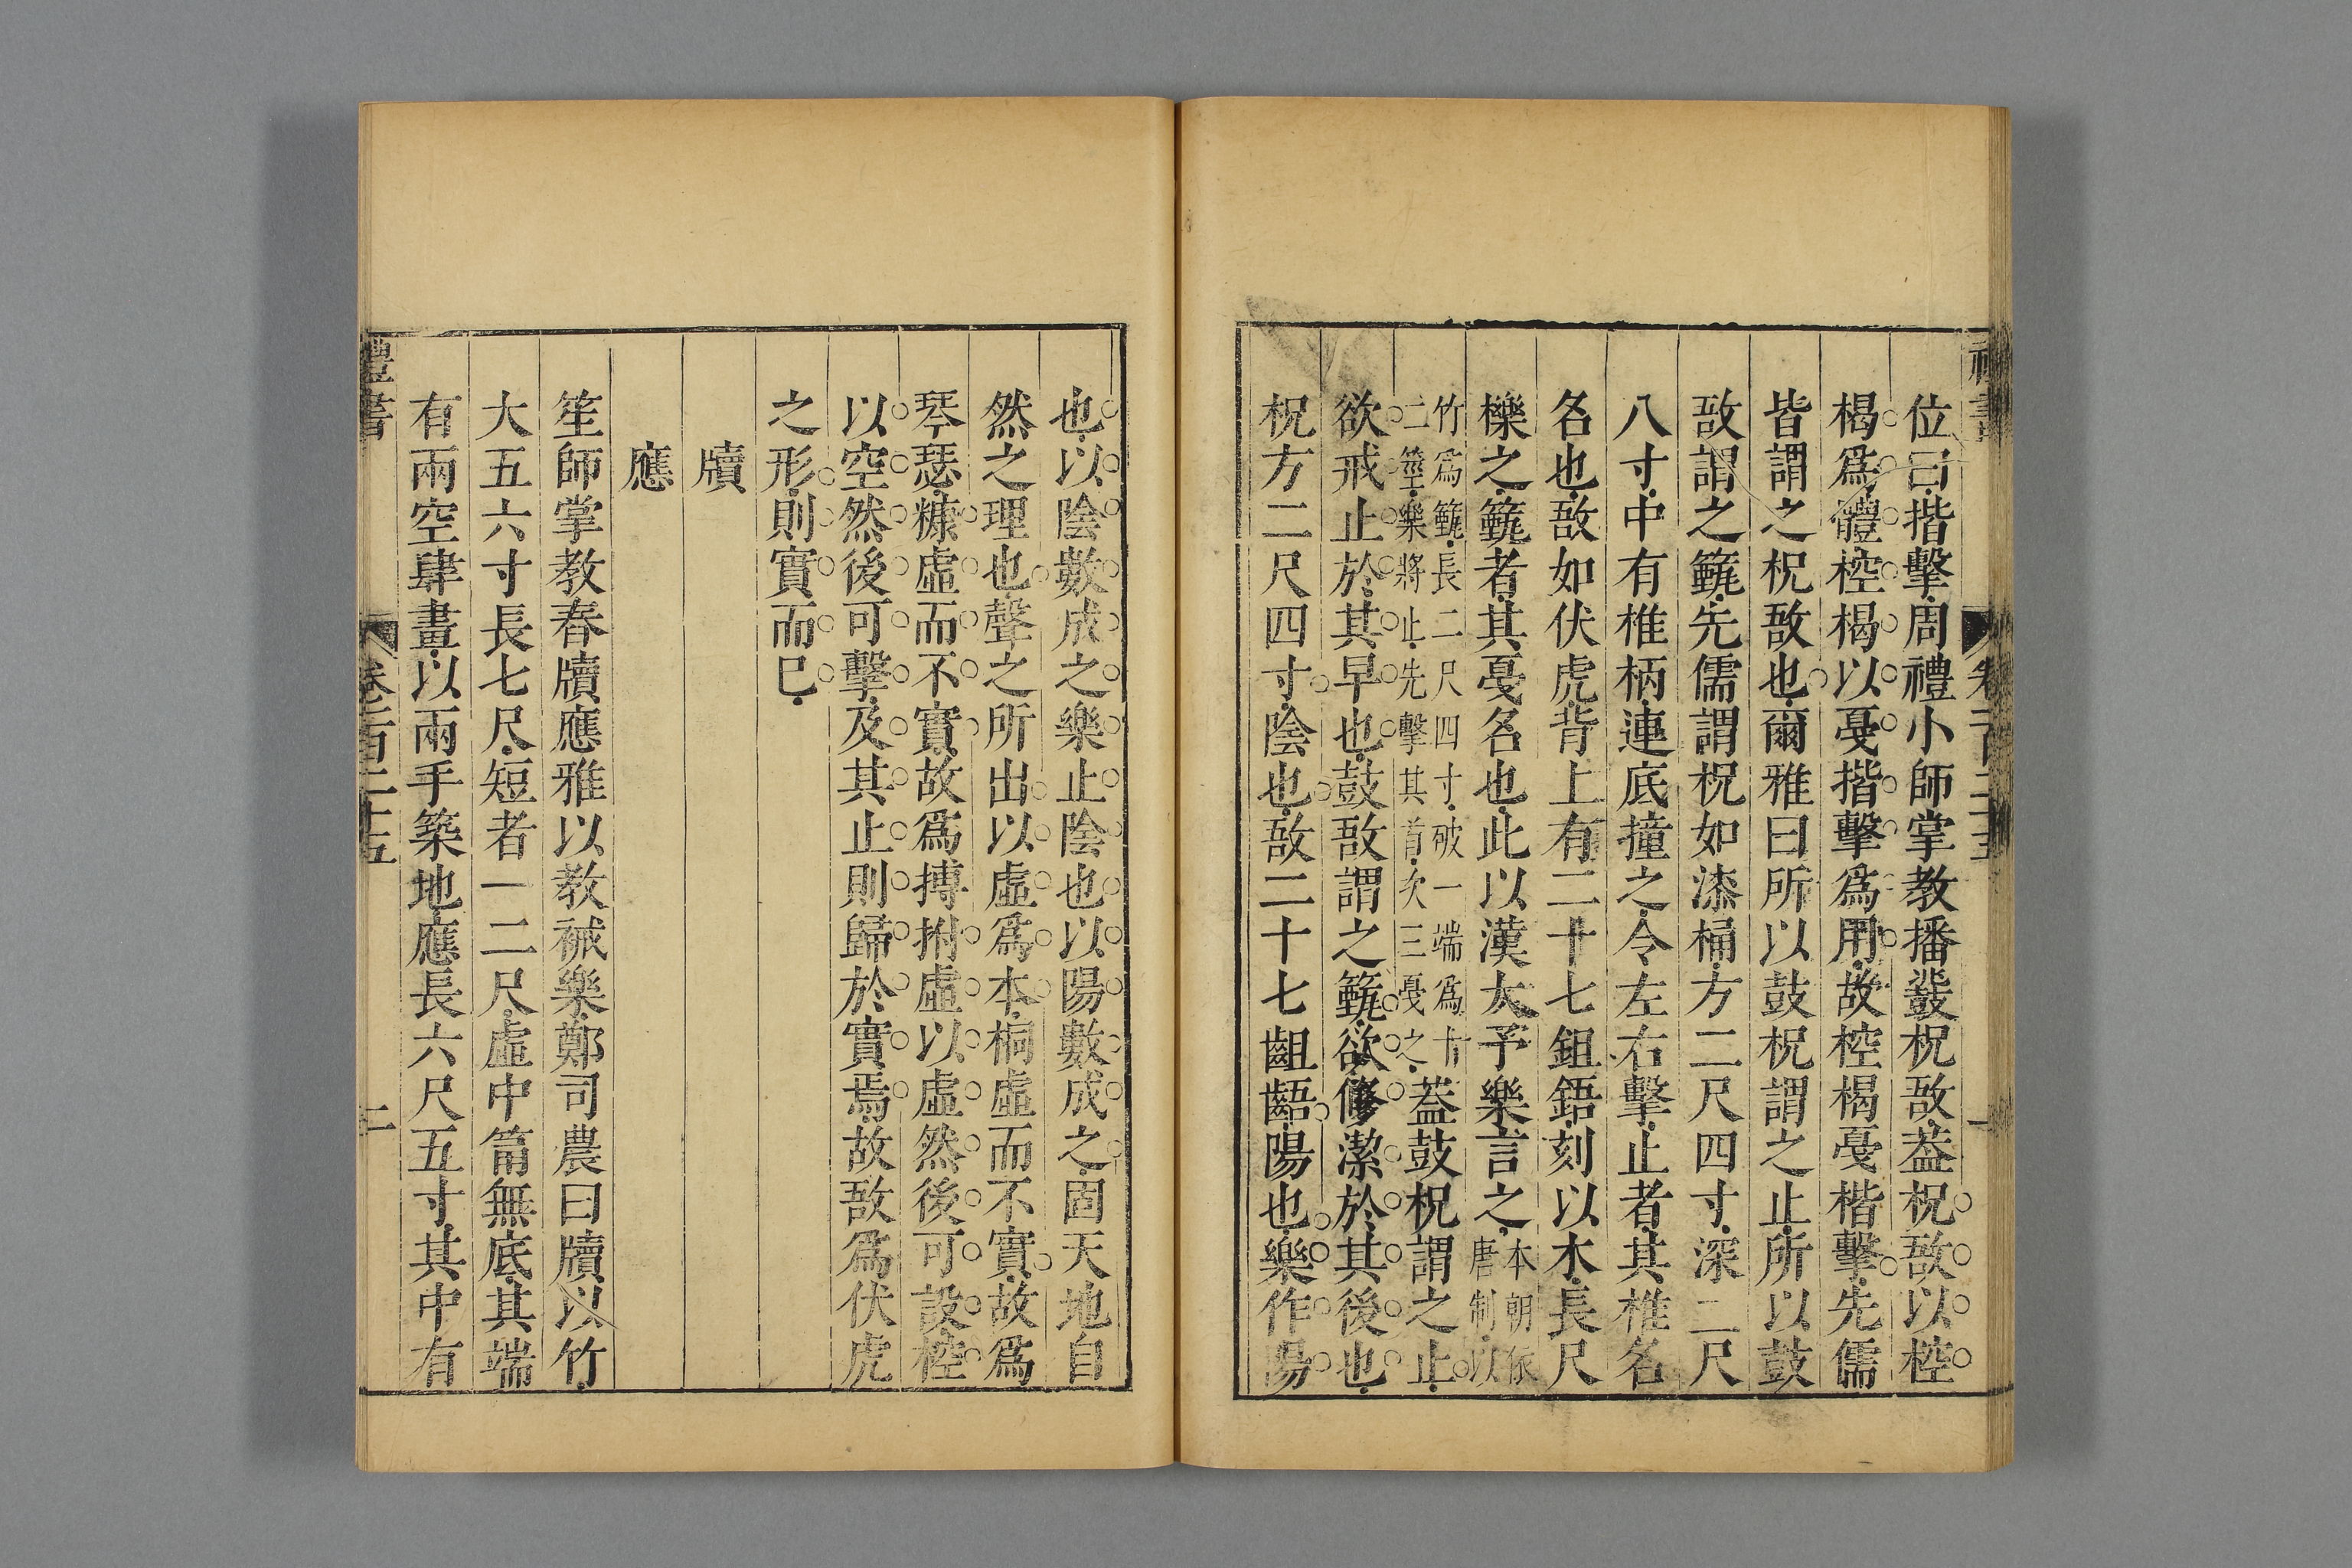 位曰揩擊周禮小師掌教播鼗柷敔葢柷敔以椌
楬爲體椌楬以戞揩擊爲用故椌楬戞楷擊先儒
皆謂之柷敔也爾雅曰所以鼓柷謂之止所以鼓
敔謂之籈先儒謂柷如漆桶方二尺四寸深二尺
八寸中有椎柄連底撞之令左右擊止者其椎名
名也敔如伏虎背上有二十七鉏鋙刻以木長尺
櫟之籈者其戞名也此以漢大予樂言之本朝依
唐制以
竹爲籈長二尺四寸破一端爲十
二莖樂將止先擊其首次三戞之葢鼓柷謂之止
欲戒止於其早也鼓敔謂之籈欲修潔於其後也
柷方二尺四寸陰也敔二十七齟齬陽也樂作陽
也以陰數成之樂止陰也以陽數成之固天地自
然之理也聲之所出以虛爲本桐虛而不實故爲
琴瑟糠虛而不實故爲搏拊虛以虛然後可設椌
以空然後可擊及其止則歸於實焉故敔爲伏虎
之形則實而已
牘
應
笙師掌教舂牘應雅以教祴樂鄭司農曰牘以竹
大五六寸長七尺短者一二尺虛中筩無底其端
有兩空髹畫以兩手築地應長六尺五寸其中有
禮書
卷一百二十五
二